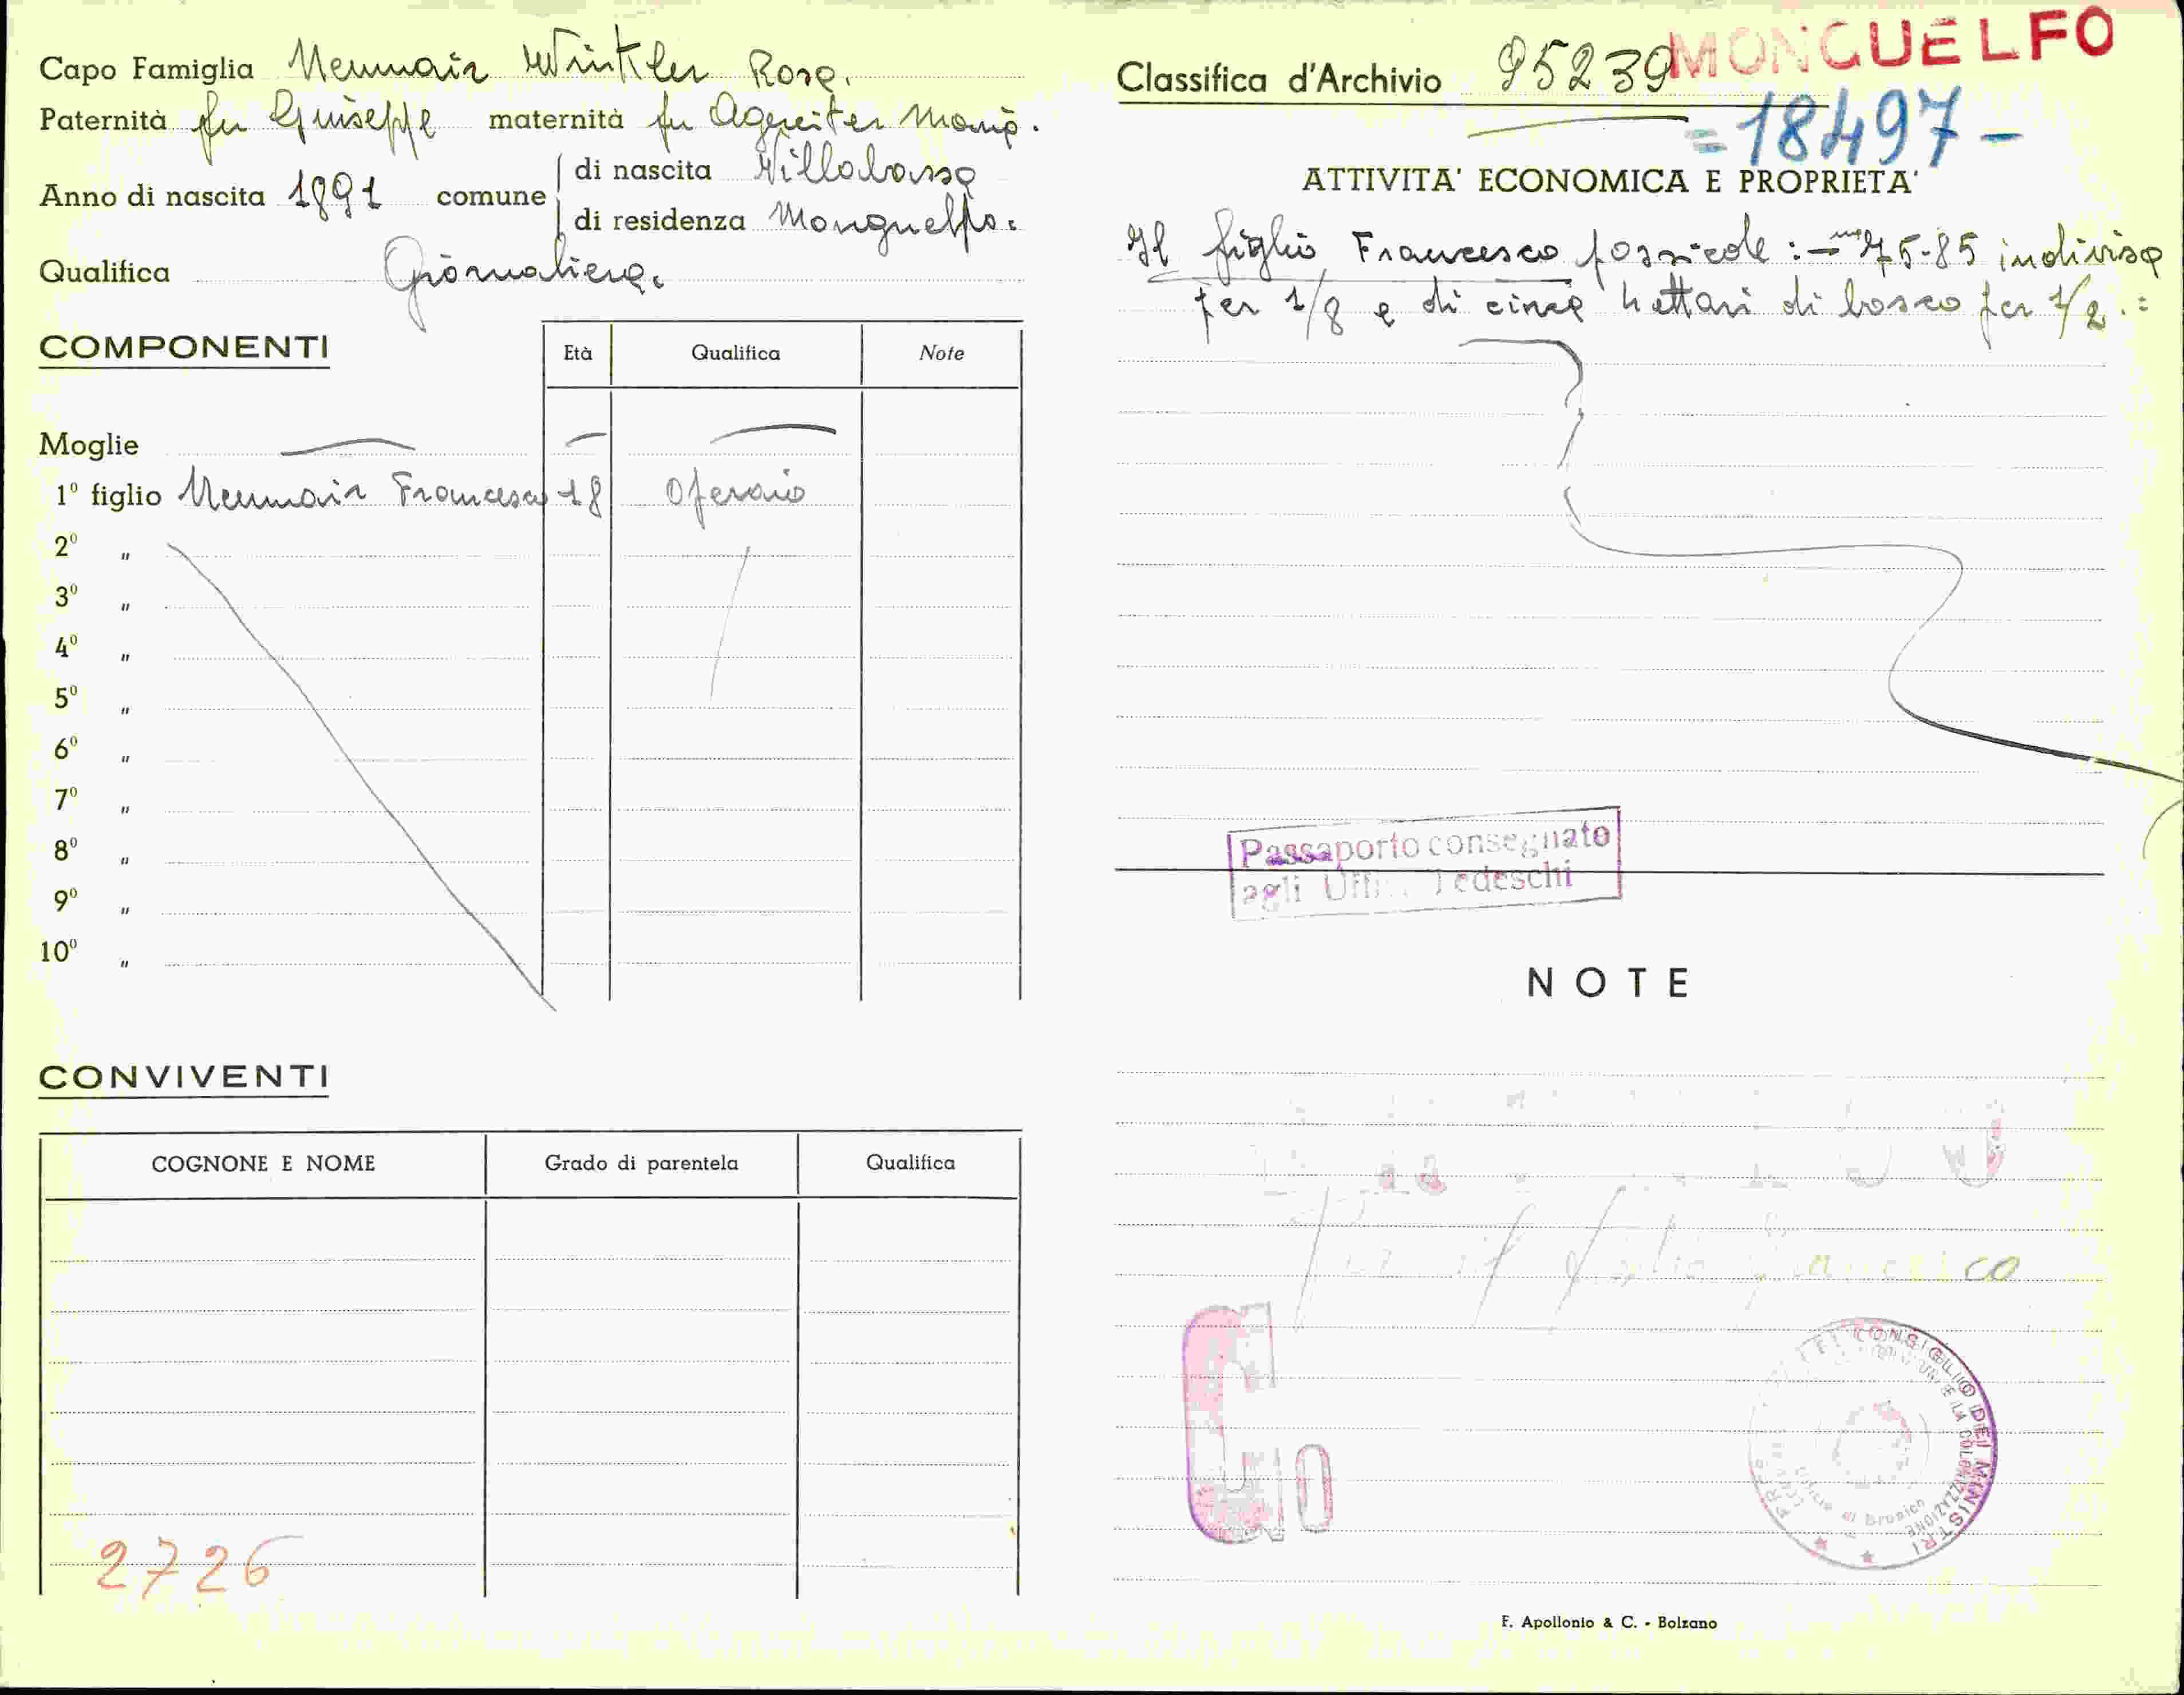 Capo Famiglia Neumair Winkler Rosa.
Paternità fu Giuseppe maternità fu Agereiter Maria.
Anno di nascita 1891 comune di nascita Villabassa
di residenza Monguelfo.
Qualifica Giornaliera.
COMPONENTI
Età Qualifica Note
Moglie
1º figlio Neumair Francesco 18 Operaio
2º "
3º "
4º "
5º "
6º "
7º "
8º "
9º "
10º "
CONVIVENTI
COGNONE E NOME Grado di parentela Qualifica
2726
MONGUELFO
Classifica d'Archivio 95239
=18497-
ATTIVITA' ECONOMICA E PROPRIETA'
Il figlio Francesco possiede : 75-85 indivisa
per 1/8 e di cinque hettari di bosco per 1/2.=
Passaporto consegnato
agli Uffi Tedeschi
NOTE
Per il figlio Francesco
G 0
CONSIGLIO DEI MINISTRI
E LA COLONIZZAZIONE
Ufficio di Brunico
F. Apollonio & C. - Bolzano